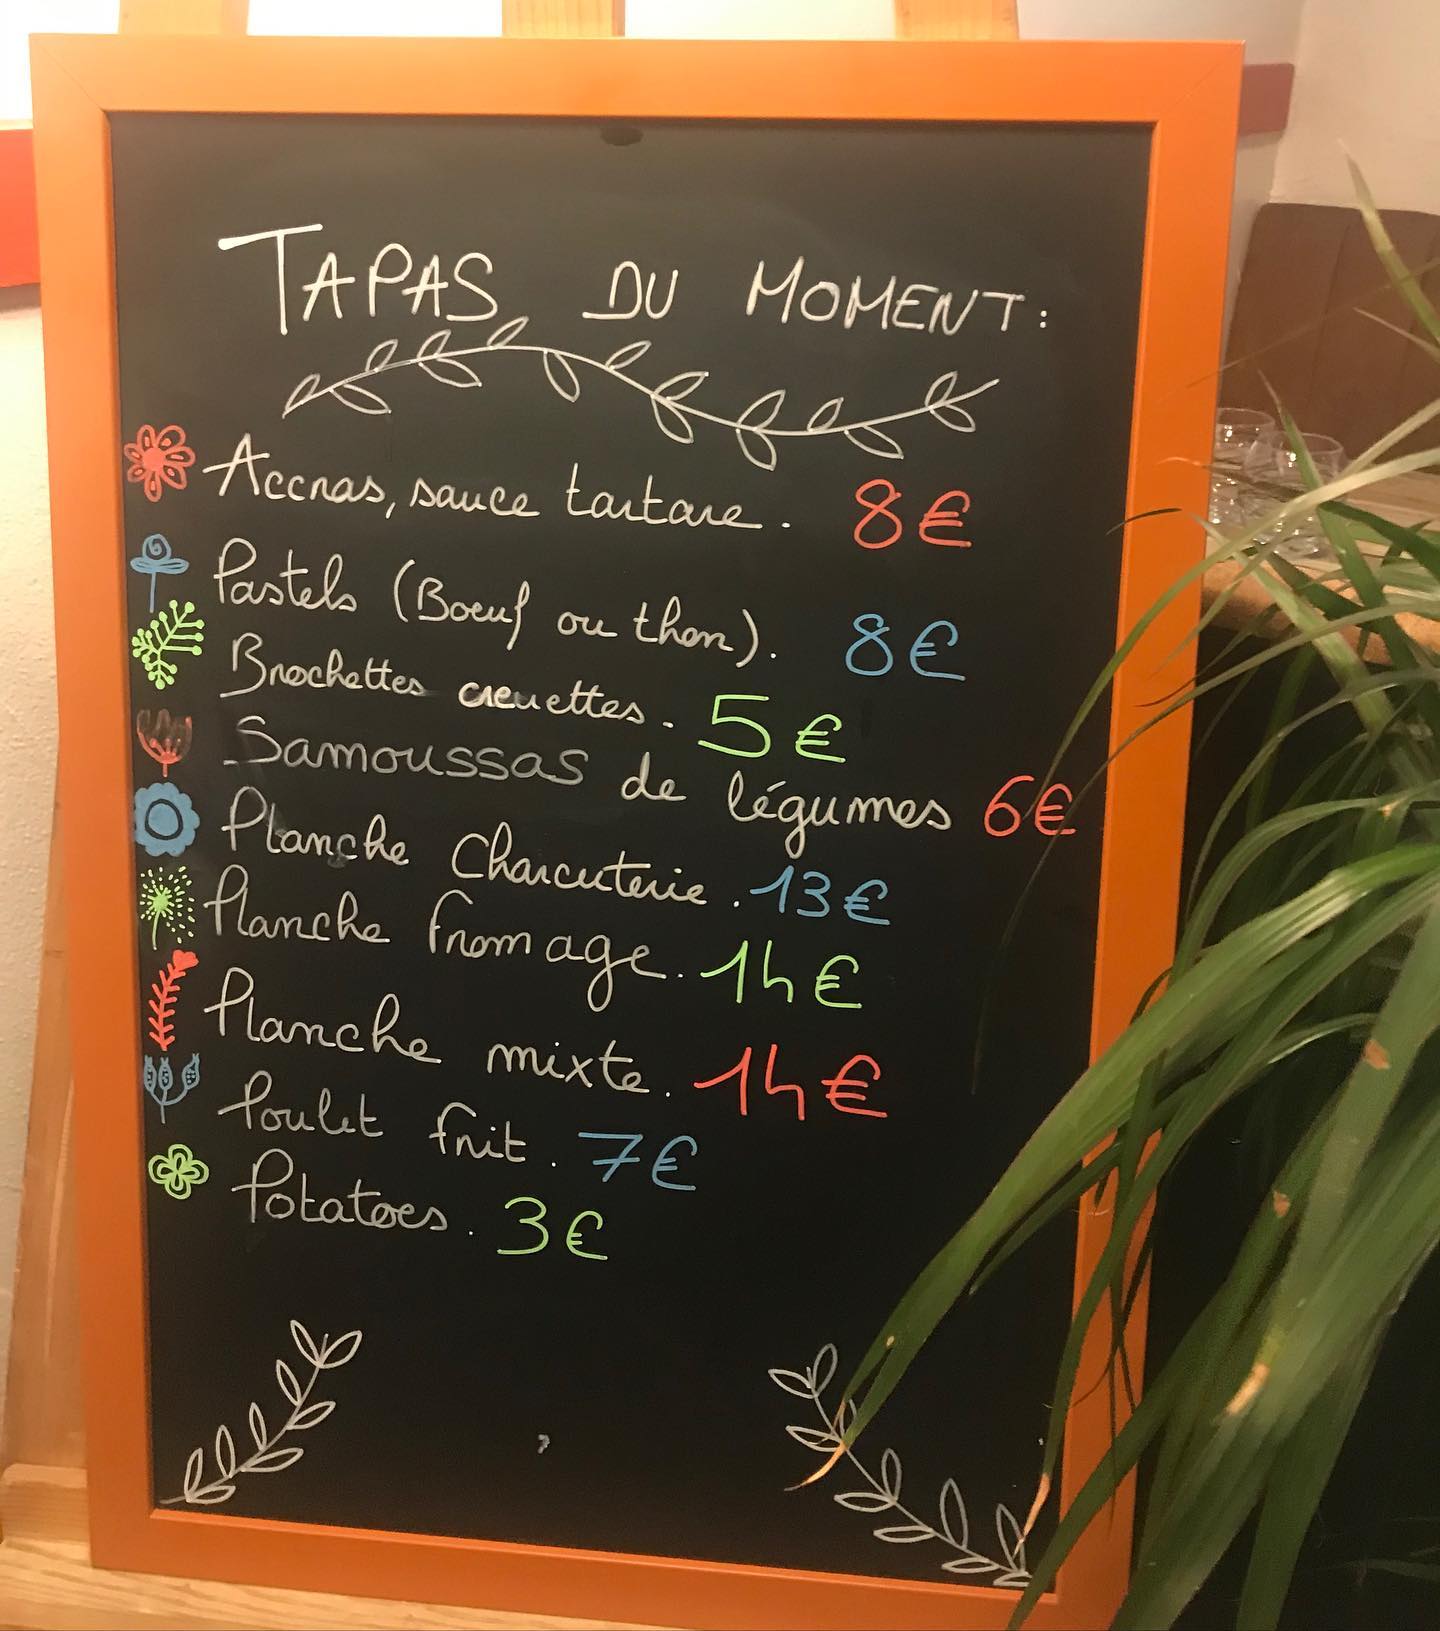 TAPAS DU MOMENT:
Accras, sauce tartare. 8€
Pastels (Boeuf ou thon). 8€
Brochettes crevettes. 5€
Samoussas de légumes 6€
Planche Charcuterie. 13€
Planche fromage. 14€
Planche mixte. 14€
Poulet frit. 7€
Potatoes. 3€